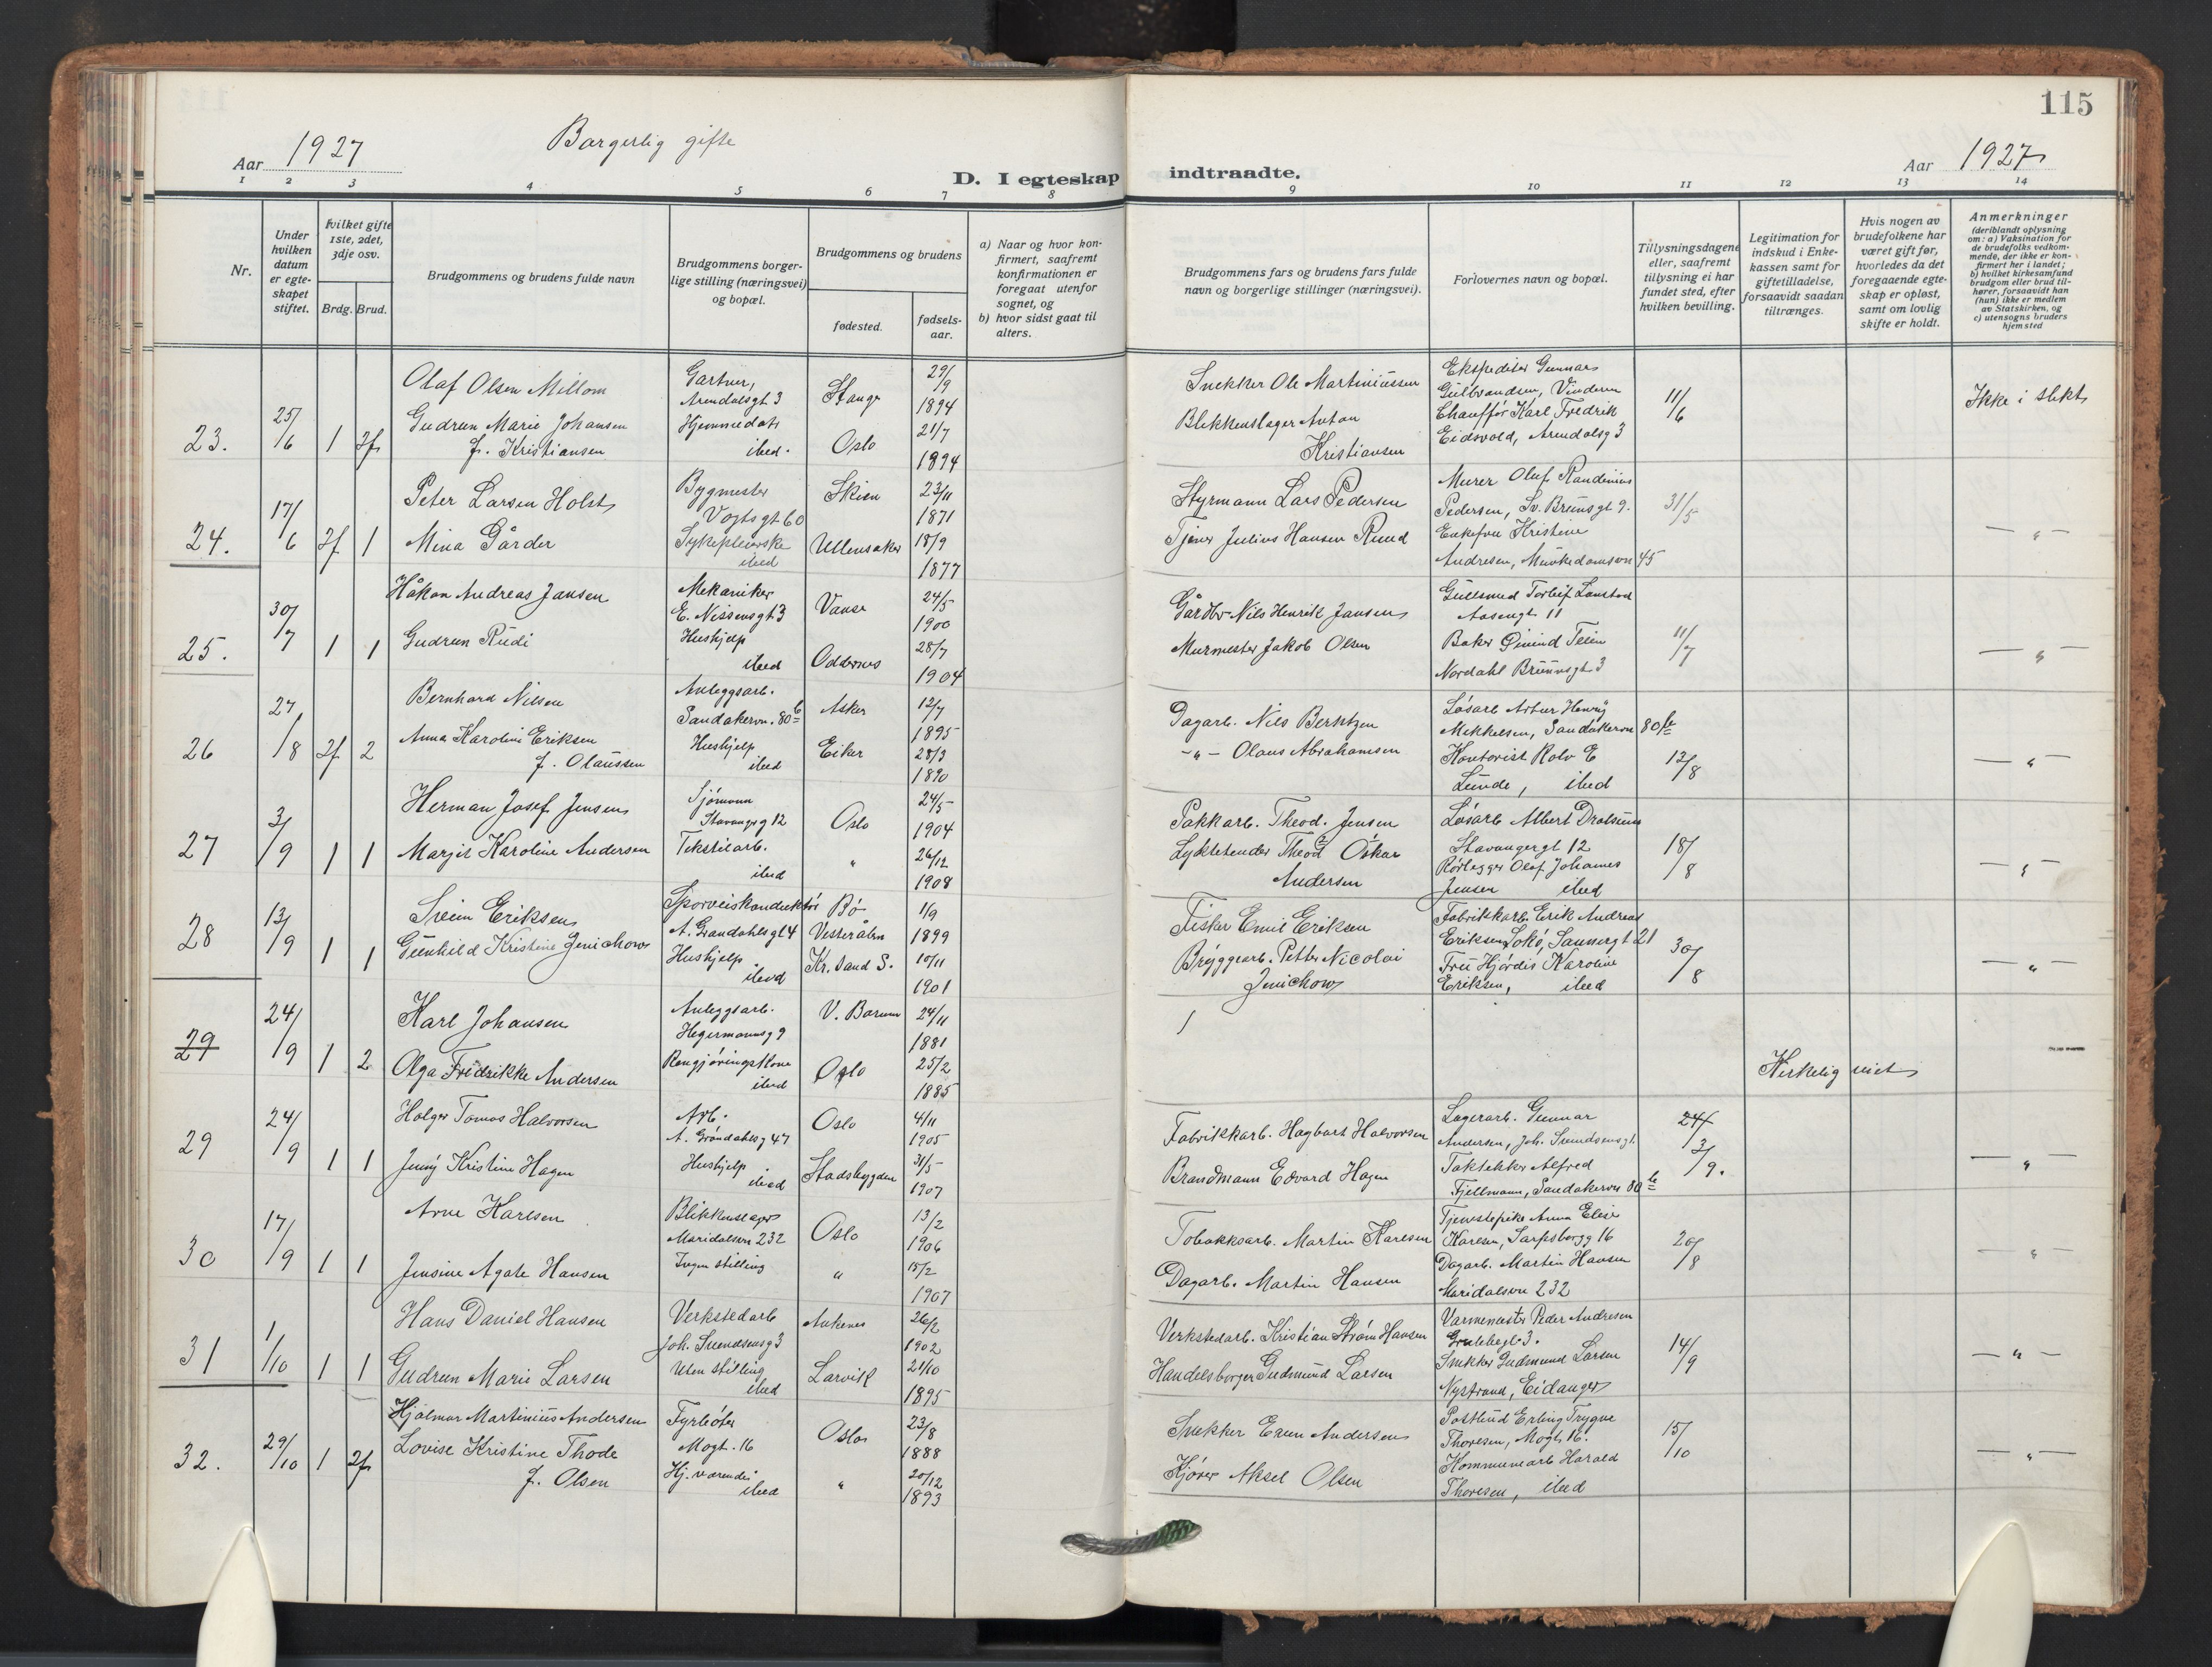 115
Aar 1927
Borgerlig gifte
D. I egteskap indtraadte.
Aar 1927
1 2 3 4 5 6 7 8 9 10 11 12 13 14
Nr.
Under hvilken datum er egteskapet stiftet.
Hvilket gifte 1ste, 2det, 3dje osv.
Brdg. Brud.
Brudgommens og brudens fulde navn
Brudgommens borgerlige stilling (næringsvei) og bopæl.
Brudgommens og brudens
fødested.
fødselsaar.
a) Naar og hvor konfirmert, saafremt konfirmationen er foregaat utenfor sognet, og
b) hvor sidst gaat til alters.
Brudgommens fars og brudens fars fulde navn og borgerlige stillinger (næringsvei).
Forlovernes navn og bopæl.
Tillysningsdagene eller, saafremt tillysning ei har fundet sted, efter hvilken bevilling.
Legitimation for indskud i Enkekassen samt for giftetilladelse, forsaavidt saadan tiltrænges.
Hvis nogen av brudefolkene har været gift før, hvorledes da det foregaaende egteskap er opløst, samt om lovlig skifte er holdt.
Anmerkninger (deriblandt oplysning om: a) Vaksination for de brudefolks vedkommende, der ikke er konfirmert her i landet; b) hvilket kirkesamfund brudgom eller brud tilhører, forsaavidt han (hun) ikke er medlem av Statskirken, og c) utensogns bruders hjemsted
23. 25/6 1 2f
Olaf Olsen Millom
Gartner, Arendalsgt 3
Stange 29/9 1894
Gudrun Marie Johansen f. Kristiansen
Hjemmedatt ibid.
Oslo 21/7 1894
Snekker Ole Martiniussen
Blikkenslager Anton Kristiansen
Ekspeditør Gunnar Gulbrandsen, Vinderen
Chauffør Karl Fredrik Eidsvold, Arendalsg 3
11/6
Ikke i slekt
24. 17/6 2f 1
Peter Larsen Holst
Bygmester Vogtsgt 60
Skien 23/11 1871
Mina Gårder
Sykepleierske ibid
Ullensaker 18/9 1877
Styrmann Lars Pedersen
Tjener Julius Hansen Ruud
Murer Oluf Randinius Pedersen, Sv. Brunsgt 9.
Enkefru Kristine Andresen, Munkedamsvn 45
31/5
— " —
25. 30/7 1 1
Håkon Andreas Jansen
Mekaniker E. Nissensgt 3
Vanse 24/5 1900
Gudrun Rudi
Hushjelp ibid
Oddernes 28/7 1904
Gårdbr Nils Henrik Jansen
Murmester Jakob Olsen
Gullsmed Torleif Lanstad Aasengt 11
Baker Øivind Teien Nordahl Brunnsgt 3
11/7
— " —
26 27/8 2f 2
Bernhard Nilsen
Anleggsarb. Sandakervn. 80 b
Asker 12/7 1895
Anna Karoline Eriksen f. Olaussen
Hushjelp ibid
Eiker 28/3 1890
Dagarb. Nils Berntzen
- " - Olaus Abrahamsen
Løsarb Artur Henry Mikkelsen, Sandakervn 80 b
Kontorist Rolv E Lunde, ibid
12/8
— " —
27 3/9 1 1
Herman Josef Jensen
Sjømann Stavangg 12
Oslo 24/5 1904
Margit Karoline Andersen
Tekstilarb. ibid
" 26/12 1908
Pakkarb. Theod. Jensen
Lyktetender Theod Oskar Andersen
Løsarb Albert Dralsums Stavangergt 12
Rørlegger Olaf Johannes Jensen ibid
18/8
— " —
28 13/9 1 1
Svein Eriksen
Sporveiskonduktør A. Grøndahlsgt 4
Bø Vesterålen 1/9 1899
Gunhild Kristine Jenichow
Hushjelp. ibid
Kr. Sand S. 10/11 1901
Fisker Emil Eriksen
Bryggearb. Petter Nicolai Jenichow
Fabrikkarb. Erik Andreas Eriksen Sokø, Sannergt 21
Fru Hjørdis Karoline Eriksen, ibid
30/8
— " —
29 24/9 1 2
Karl Johansen
Anleggsarb. Hegermannsg 9
V. Bærum 24/11 1881
Olga Fredrikke Andersen
Rengjøringskone ibid
Oslo 25/2 1885
Kirkelig viet
29 24/9 1 1
Holger Tomas Halvorsen
Arb. A. Grøndahlsg 47
Oslo 4/11 1905
Jenny Kristine Hagen
Hushjelp ibid
Stadsbygden 31/5 1907
Fabrikkarb. Hagbart Halvorsen
Brandmann Edvard Hagen
Lagerarb. Gunnar Andersen, Joh. Svendsensgt.
Taktekker Alfred Fjellmann, Sandakervn 80 b
3/9.
— " —
30 17/9 1 1
Arne Karlsen
Blikkenslager Maridalsvn 232
Oslo 13/2 1906
Jensine Agate Hansen
Ingen stilling
" 15/2 1907
Tobakksarb. Martin Karlsen
Dagarb. Martin Hansen
Tjenestepike Anna Elise Karlsen, Sarpsborgg 16
Dagarb. Martin Hansen Maridalsvn 232
20/8
— " —
31 1/10 1 1
Hans Daniel Hansen
Verkstedarb Joh. Svendsensg 3
Ankenes 26/2 1902
Gudrun Marie Larsen
Uten stilling ibid
Larvik 21/10 1895
Verkstedarb. Kristian Strøm Hansen
Handelsborger Gudmund Larsen
Varmemester Peder Andresen 3.
Snekker Gudmund Larsen Nystrand, Eidanger
14/9
— " —
32. 29/10 1 2f
Hjalmar Martinius Andersen
Fyrbøter Mogt. 16
Oslo 23/8 1888
Lovise Kristine Thode f. Olsen
Hj. værende. ibid
" 20/12 1893
Snekker Even Andersen
Kjører Aksel Olsen
Postbud Erling Trygve Thoresen, Mogt. 16.
Kommunearb Harald Thoresen, ibid
15/10
— " —